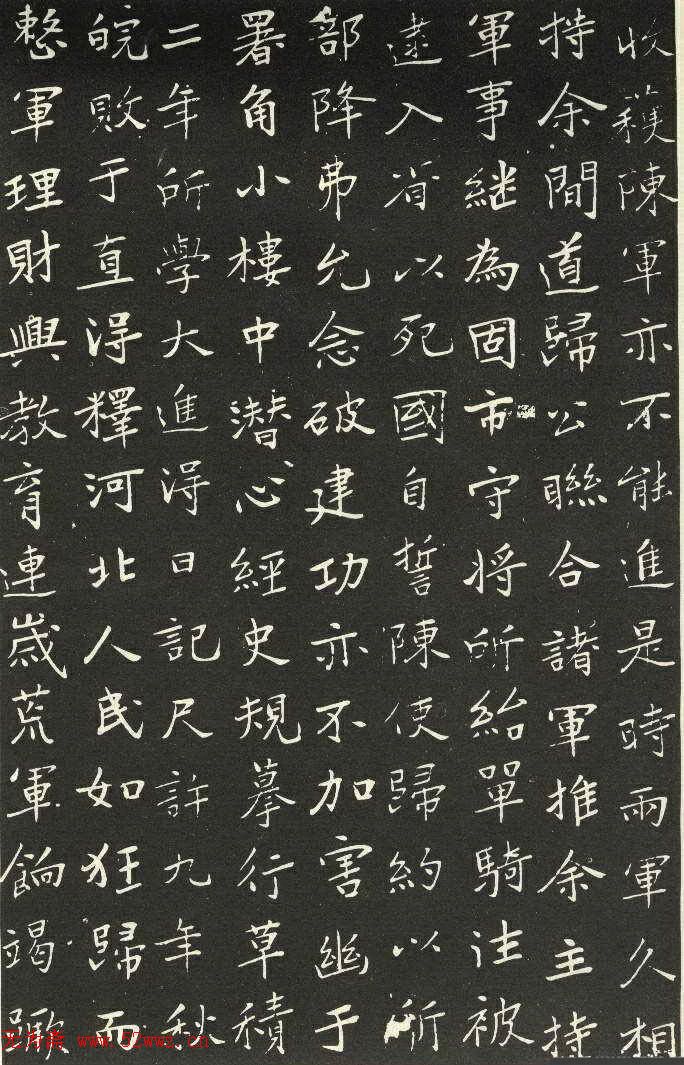 收穫陳軍亦不能進是時兩軍久相
持余間道歸公聯合諸軍推余主持
軍事継為固市守将所紿單騎往被
逮入省以死國自誓陳使歸約以所
部降弗允念破建功亦不加害幽于
署角小樓中潛心經史規摹行草積
二年所學大進得日記尺許九年秋
皖敗于直得釋河北人民如狂歸而
整軍理財興教育連歲荒軍餉竭蹶